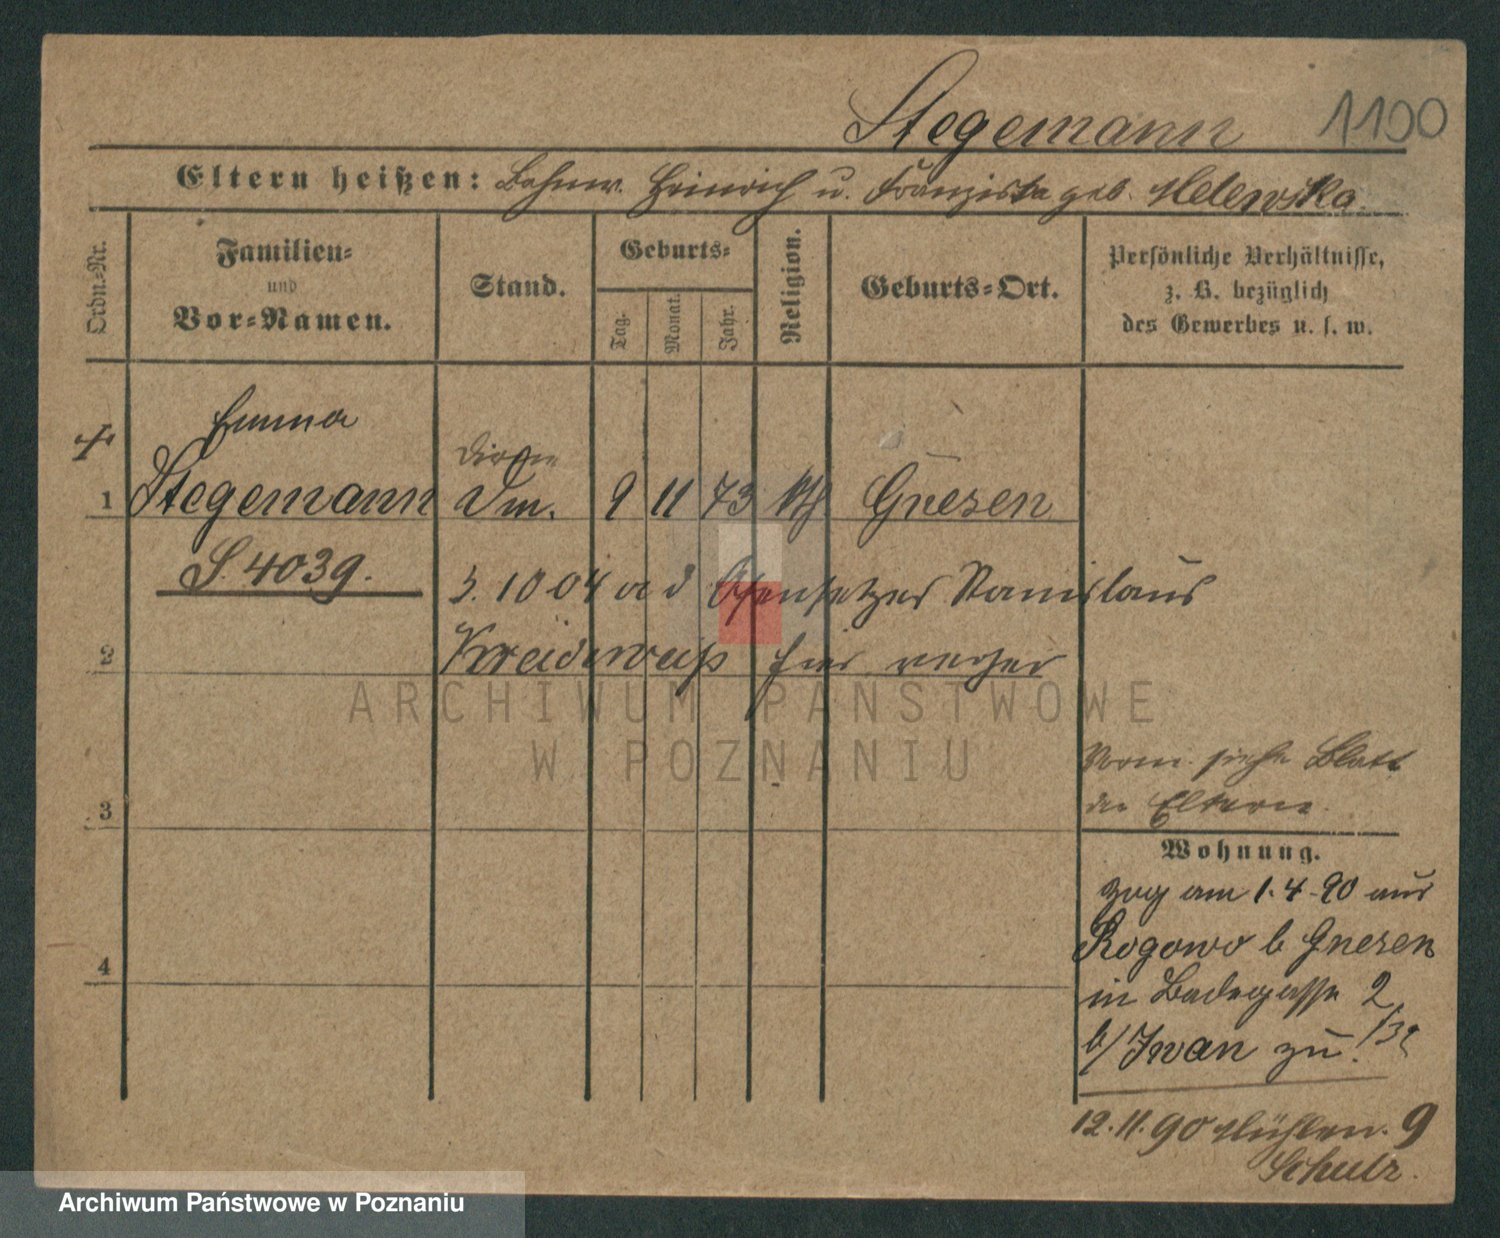 Stegemann 1100
Eltern heißen: Bahnw. Heinrich u. Franziska geb. Melewska.
Ordn.-Nr.
Familien-
und
Vor-Namen.
Stand.
Geburts-
Tag.
Monat.
Jahr.
Religion.
Geburts-Ort.
Persönliche Verhältnisse,
z. B. bezüglich
des Gewerbes u. s. w.
Emma
Dirne
1 Stegemann Dm. 9 11 73 kth Gnesen
S. 4039.
3. 10 04 a d Ofensetzer Stanislaus
2 Kreideweiß hier verher
ARCHIWUM PAŃSTWOWE
W POZNANIU
Vorm. siehe Blatt
3 der Eltern.
Wohnung.
zog am 1.4.90 aus
Rogowo b Gnesen
4
in Badegasse 2
b/Iwan zu.
12.11.90 Mühlen. 9
Schulz.
Archiwum Państwowe w Poznaniu